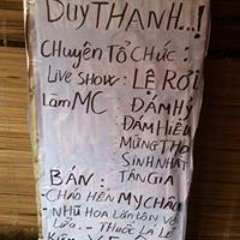 DUY THANH...!
CHUYÊN TỔ CHỨC:
LIVE SHOW: LỆ RƠI
LÀM MC ĐÁM HỶ
ĐÁM HIẾU
MỪNG THỌ
SINH NHẬT
TÂN GIA
BÁN:
- CHÁO HẾN MỴ CHÂU
- NHŨ HOA LĂN LỘN
- THUỐC LÁ LẺ